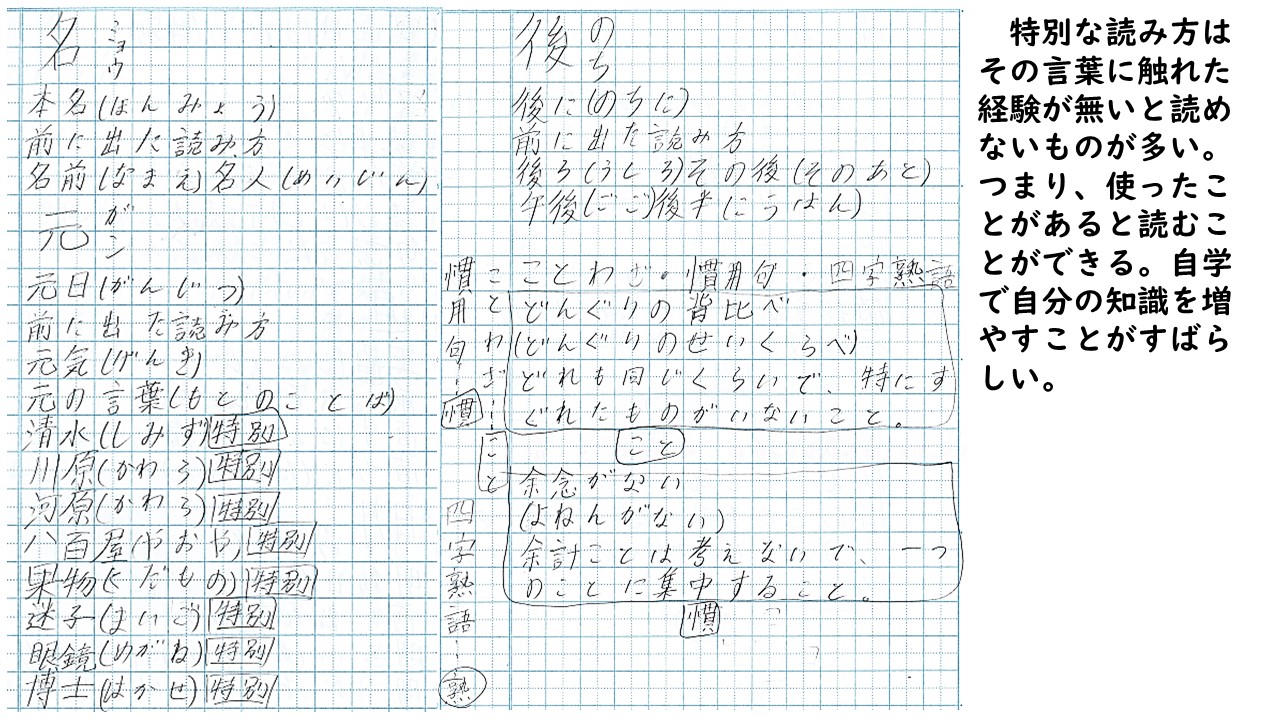 名 ミョウ
本名(ほんみょう)
前に出た読み方
名前(なまえ)名人(めいじん)
元 ガン
元日(がんじつ)
前に出た読み方
元気(げんき)
元の言葉(もとのことば)
清水(しみず)特別
川原(かわら)特別
河原(かわら)特別
八百屋(やおや)特別
果物(くだもの)特別
迷子(まいご)特別
眼鏡(めがね)特別
博士(はかせ)特別
後 のち
後に(のちに)
前に出た読み方
後ろ(うしろ)その後(そのあと)
午後(ごご)後半(こうはん)
ことわざ・慣用句・四字熟語
ことわざ…こと
慣用句…慣
四字熟語…熟
どんぐりの背比べ
(どんぐりのせいくらべ)
どれも同じくらいで、特にす
ぐれたものがいないこと。
こと
余念がない
(よねんがない)
余計ことは考えないで、一つ
のことに集中すること。
慣
特別な読み方は
その言葉に触れた
経験が無いと読め
ないものが多い。
つまり、使ったこ
とがあると読むこ
とができる。自学
で自分の知識を増
やすことがすばら
しい。